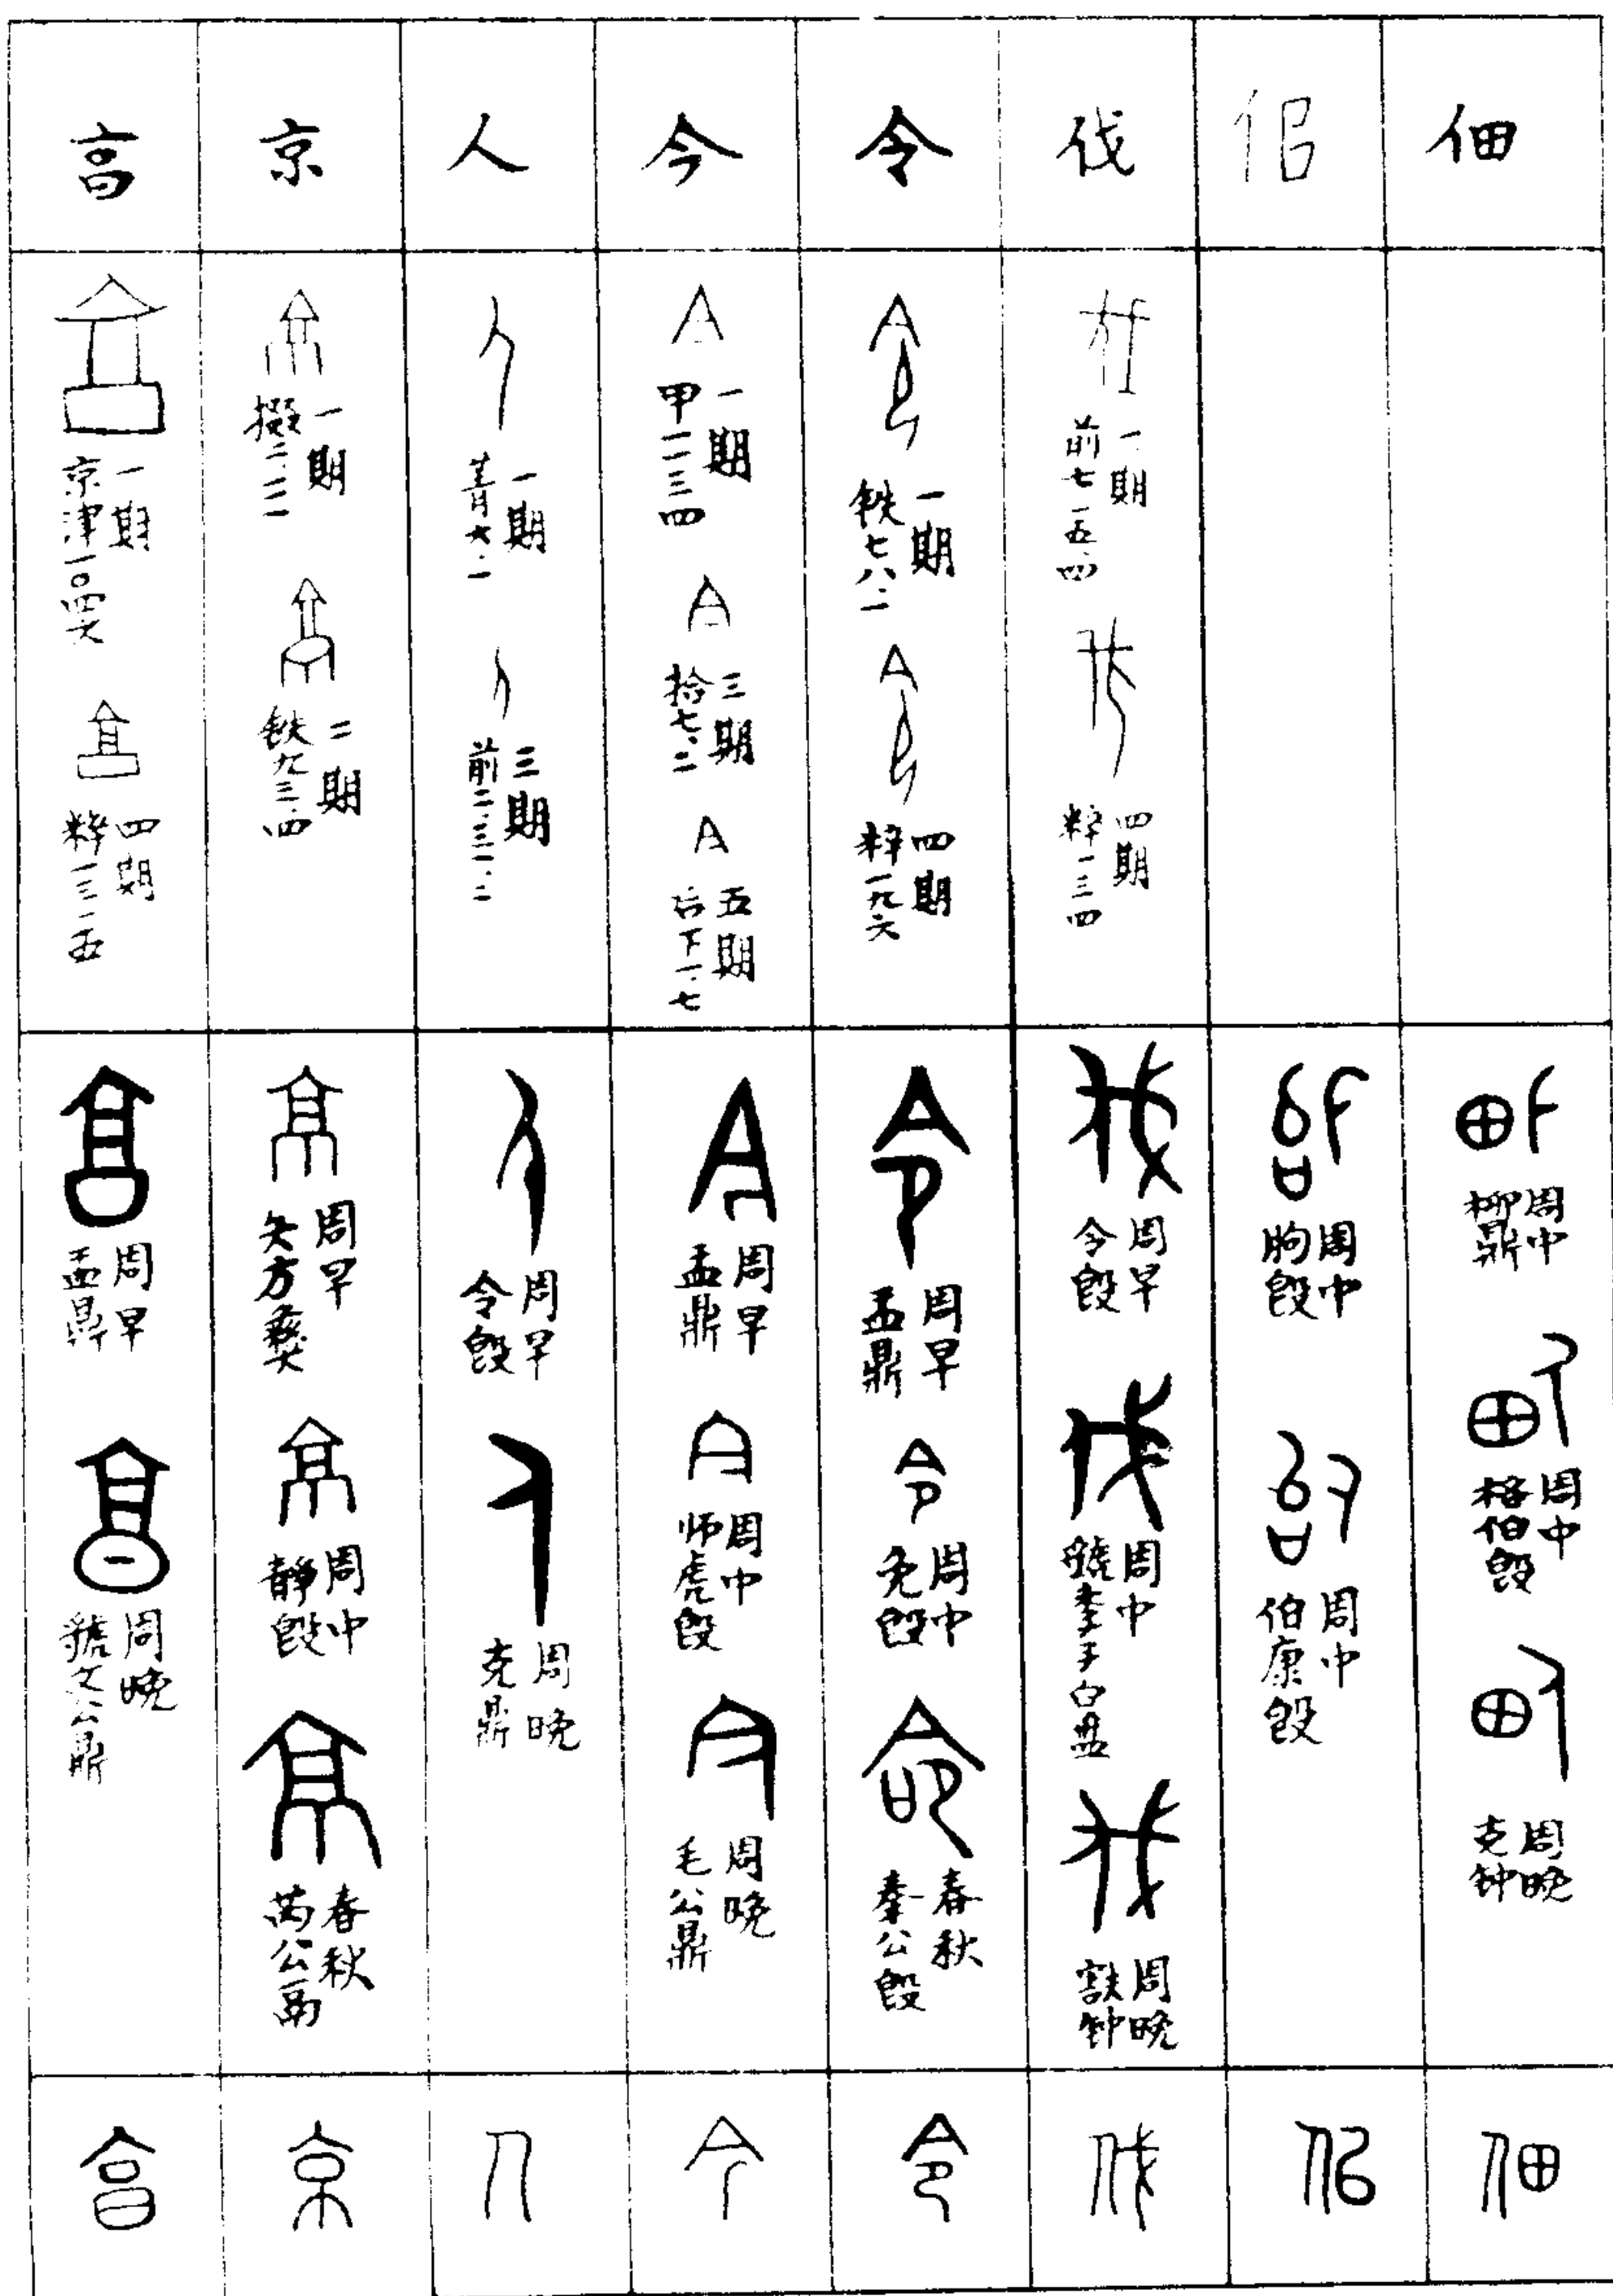 亯
京
人
今
令
伐
佀
佃
一期
京津一〇四六
四期
粹一三一五
一期
掇二.一一一
二期
铁九三.四
一期
菁六.一
三期
前二.三一.二
一期
甲一一三四
三期
拾七.二
五期
后下一.七
一期
铁七八.一
四期
粹一九六
一期
前七.一五.四
四期
粹一三四
周早
盂鼎
周晚
虢文公鼎
周早
夨方彝
周中
静𣪘
春秋
芮公鬲
周早
令𣪘
周晚
克鼎
周早
盂鼎
周中
师虎𣪘
周晚
毛公鼎
周早
盂鼎
周中
免𣪘
春秋
秦公𣪘
周早
令𣪘
周中
虢季子白盘
周晚
㝬钟
周中
朐𣪘
周中
伯康𣪘
周中
柳鼎
周中
格伯𣪘
周晚
克钟